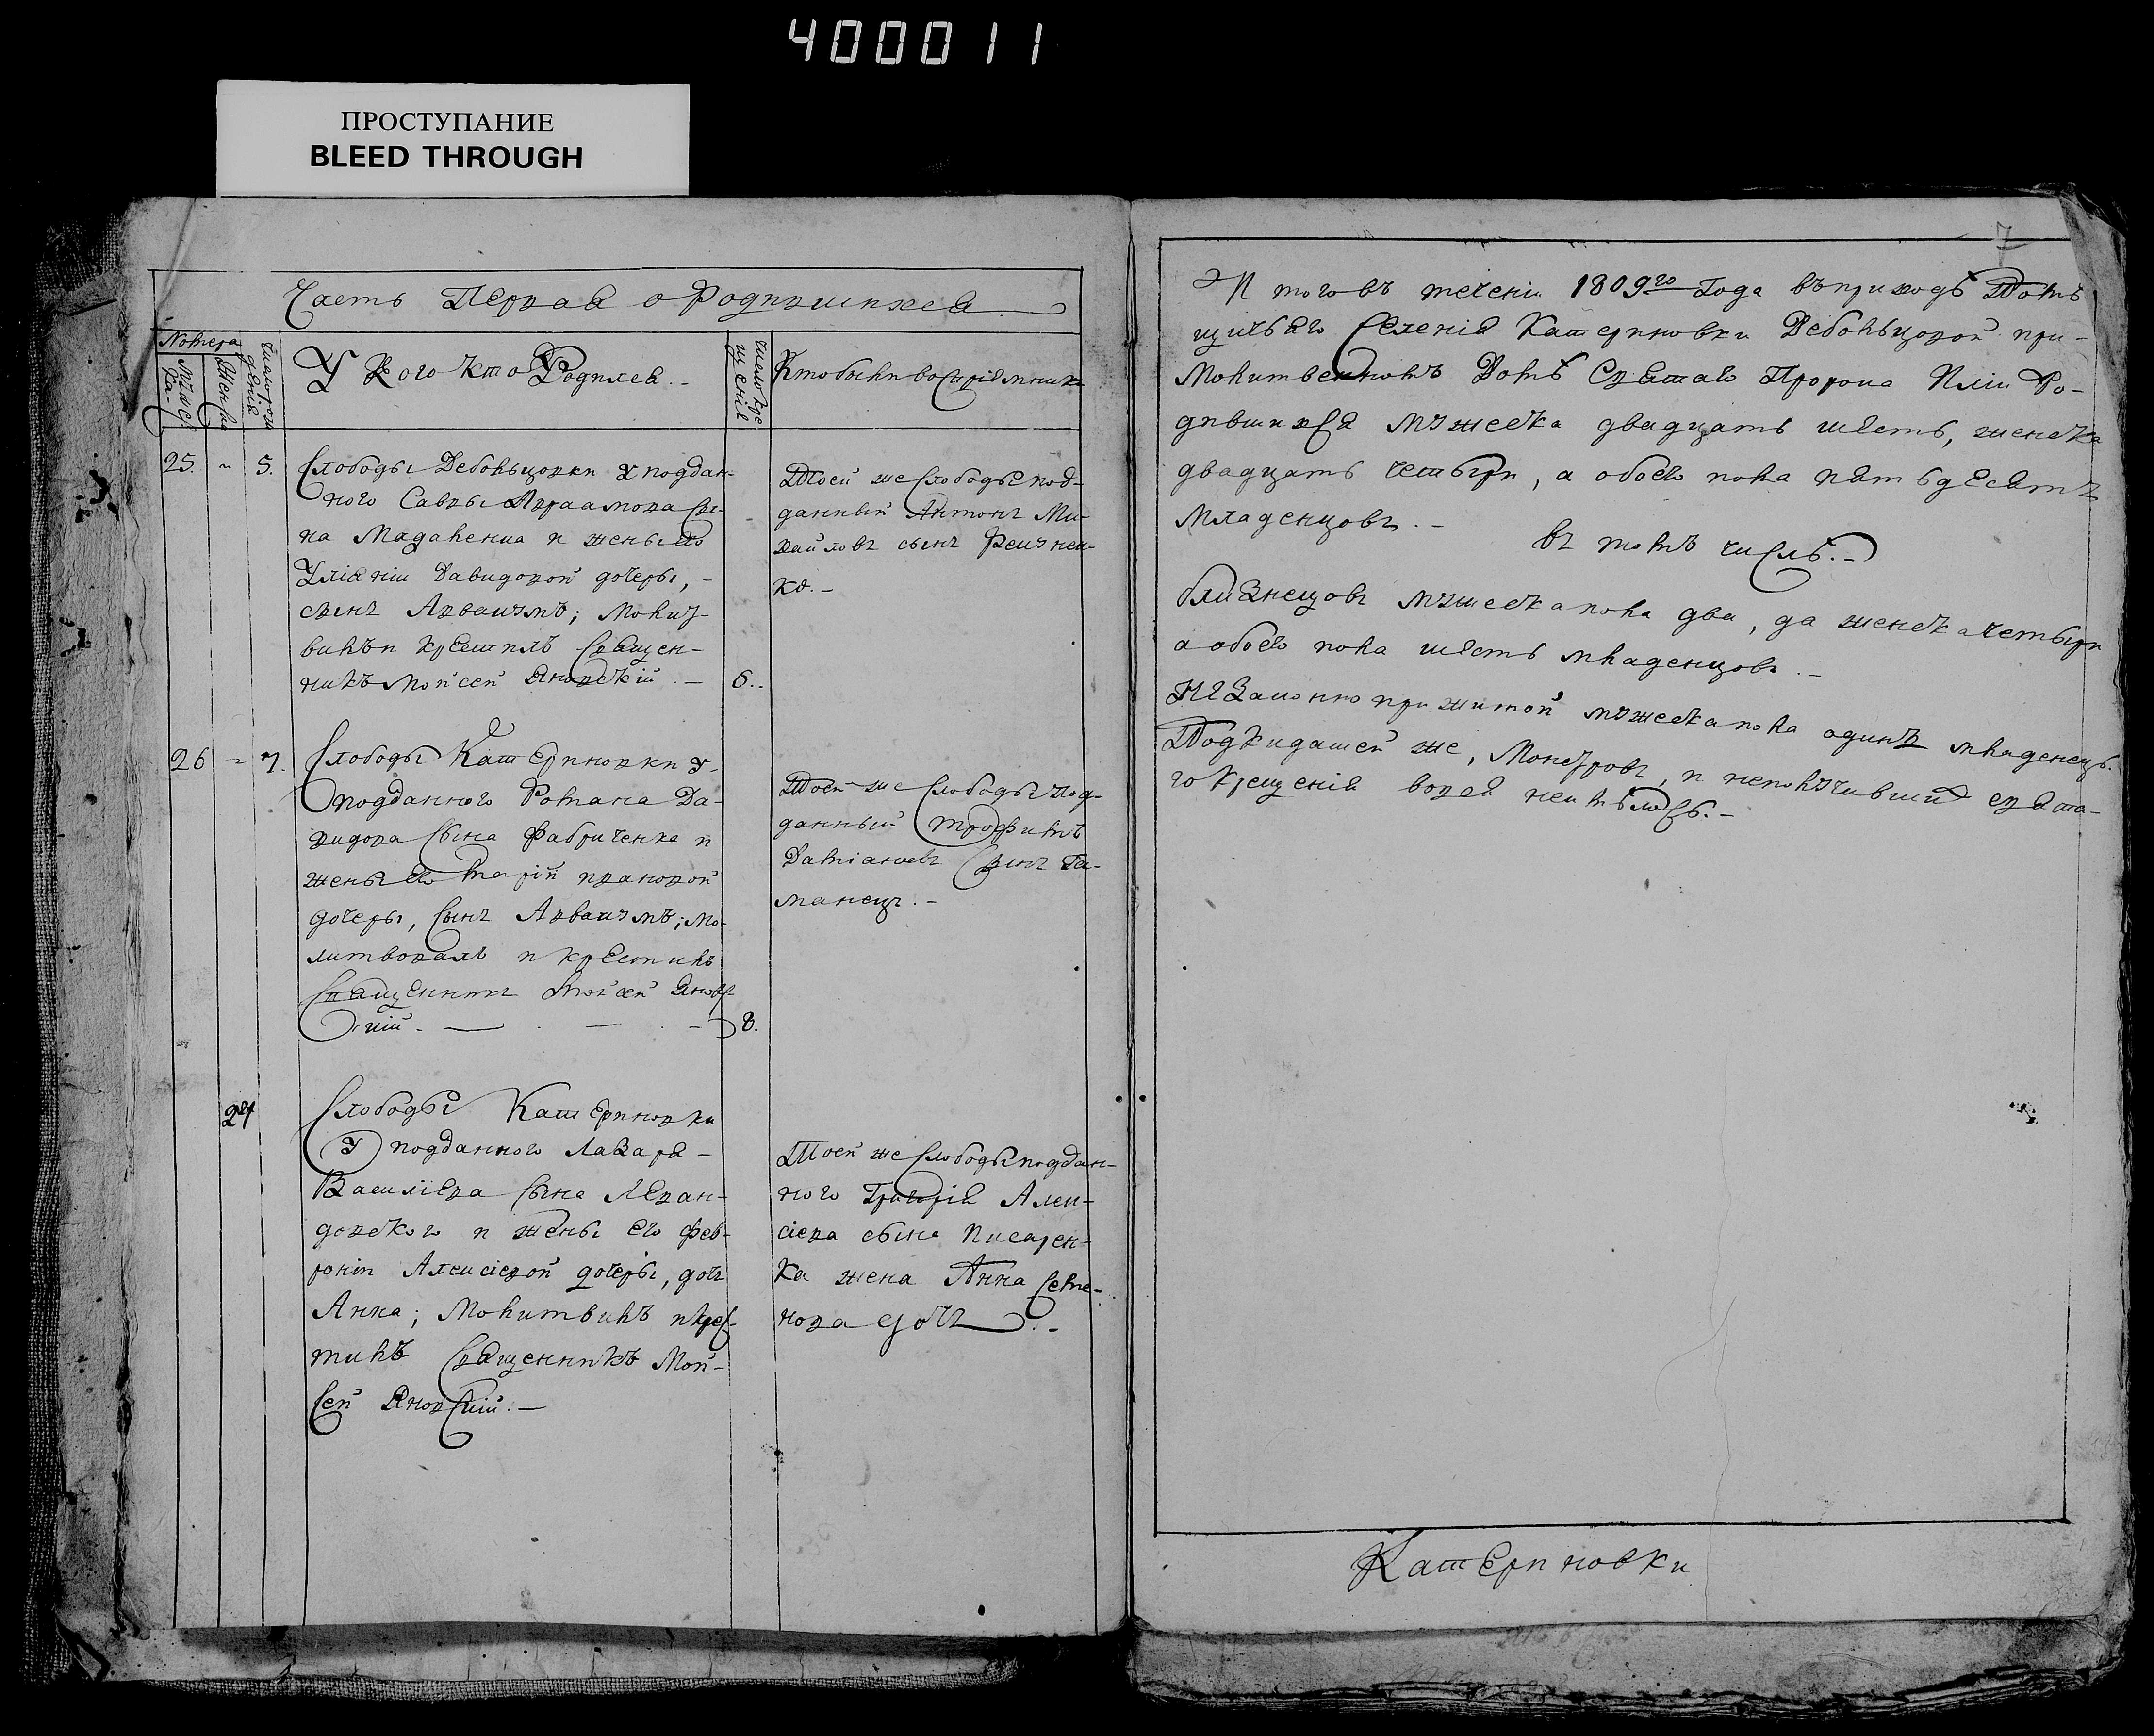 400011
ПРОСТУПАНИЕ
BLEED THROUGH
Часть Первая о Родившихся
Номера
Мужеска
Женска
Число рождения
У Кого кто Родился.-
число крещения
Кто были восприемники
25. " 5.
Слободы Дебольцовки у поддан-
ного Саввы Авраамова сы-
на Мадаленка и жены его
Улiянiи Давидовой дочеры, -
сынъ Аввакумъ; Молит-
вилъ и крестилъ Священ-
никъ Моисей Яновскiй. - 6.
Тоей же Слободы под-
данный Антонъ Ми-
хайловъ сынъ
26 " 7.
Слободы Катериновки у
подданного Романа Да-
видова сына Фабриченка и
жены его Марiи Ивановой
дочеры, сынъ Аввакумъ; Мо-
литвовалъ и крестилъ
Священникъ Моисей Яновс-
кiй. - 8.
Тоей же Слободы под-
данный Трофимъ
Дамiановъ Сынъ Га-
манецъ. -
24
Слободы Катериновки
у подданного Лазаря -
Василiева сына Леван-
довского и жены его Фев-
ронiи Алексiевой дочеры, дочь
Анна; Молитвилъ и крес-
тилъ Священникъ Мои-
сей Яновскiй. -
Тоей же Слободы поддан-
ного Григорiя Алек-
сiева сына Писарен-
ка жена Анна Семе-
нова дочь. -
7
И того въ теченiи 1809го Года въ приходѣ Помѣ-
щичьяго Селенiя Катериновки Дебольцовой при-
Молитвенномъ Домѣ Святаго Пророка Илiи Ро-
дившихся мужеска двадцать шесть, женска
двадцать четыри, а обоего пола пятьдесятъ
младенцовъ. -
въ томъ числѣ. -
близнецовъ мужеска пола два, да женска четыри
а обоего пола шесть младенцовъ. -
Незаконно прижитой мужеска пола одинъ младенецъ.
Подкидашей же, Монстровъ, и неполучивши свята-
го крещенiя вовся неимѣлось. -
Катериновки